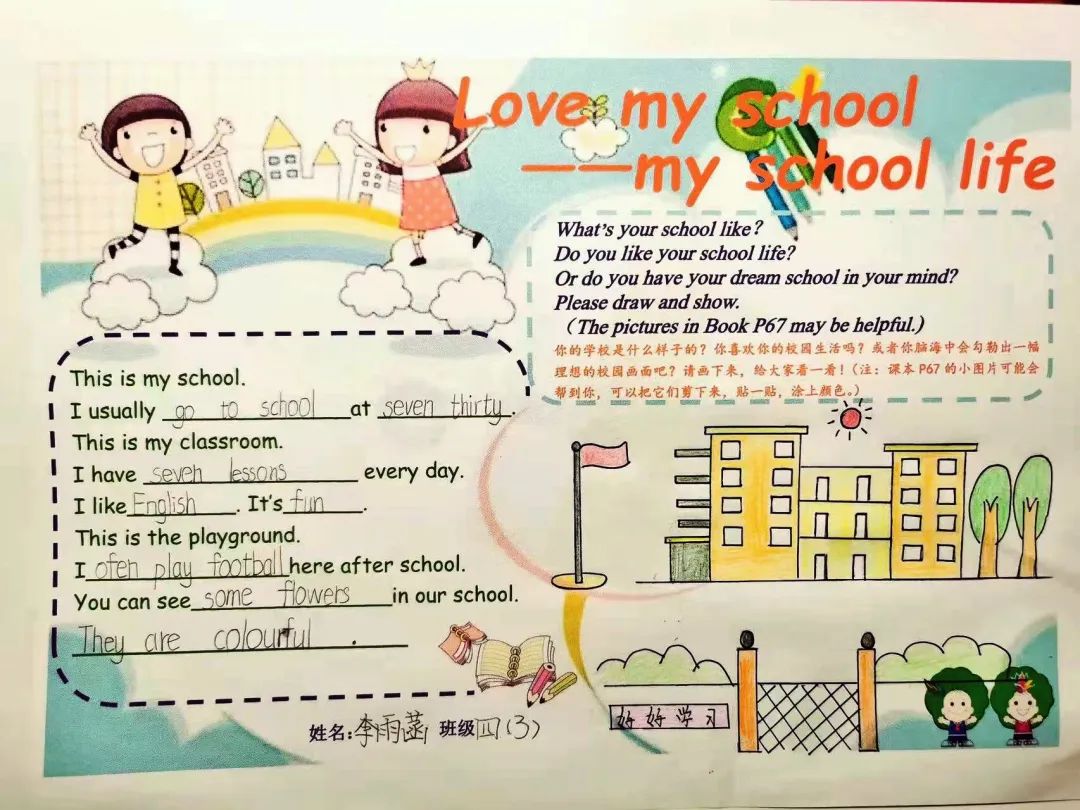 Love my school
——my school life
What's your school like?
Do you like your school life?
Or do you have your dream school in your mind?
Please draw and show.
(The pictures in Book P67 may be helpful.)
你的学校是什么样子的？你喜欢你的校园生活吗？或者你脑海中会勾勒出一幅
理想的校园画面吧？请画下来，给大家看一看！(注：课本P67的小图片可能会
帮到你，可以把它们剪下来，贴一贴，涂上颜色。)
This is my school.
I usually go to school at seven thirty.
This is my classroom.
I have seven lessons every day.
I like English. It's fun.
This is the playground.
I ofen play football here after school.
You can see some flowers in our school.
They are colourful.
好好学习
姓名:李雨菡 班级四(3)